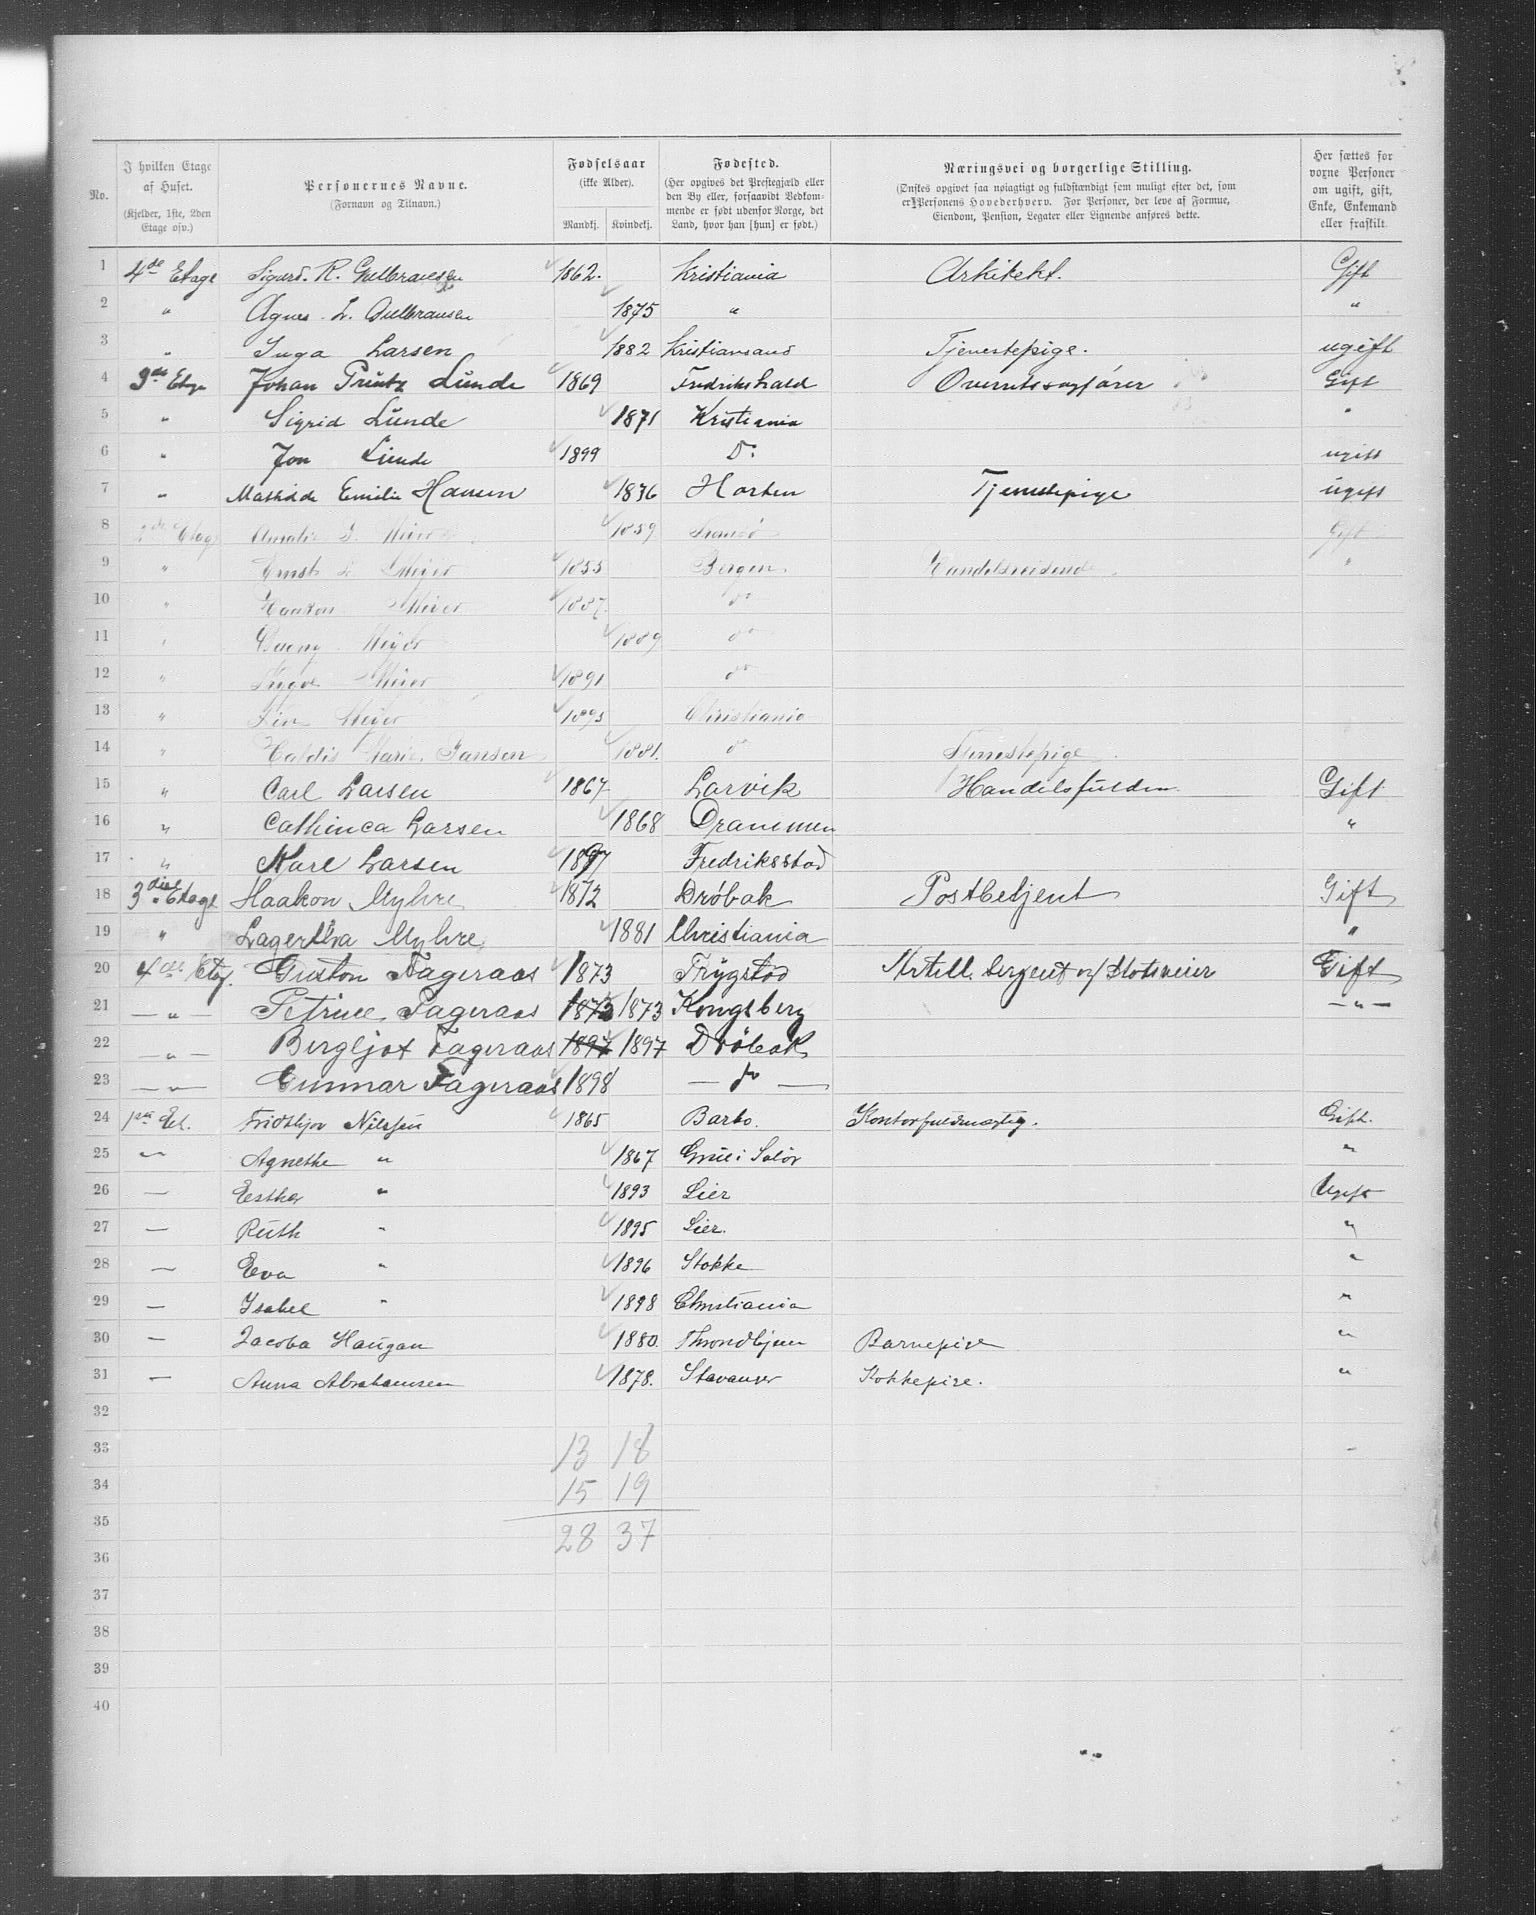 No. | I hvilken Etage af Huset. (Kjelder, 1ste, 2den Etage osv.) | Personernes Navne. (Fornavn og Tilnavn.) | Fødselsaar (ikke Alder). Mandkj. Kvindekj. | Fødested. (Her opgives det Prestegjæld eller den By eller, forsaavidt Vedkommende er født udenfor Norge, det Land, hvor han [hun] er født.) | Næringsvei og borgerlige Stilling. (Ønskes opgivet saa nøiagtigt og fuldstændigt som muligt efter det, som er Personens Hovederhverv. For Personer, der leve af Formue, Eiendom, Pension, Legater eller Lignende anføres dette. | Her sættes for voxne Personer om ugift, gift, Enke, Enkemand eller fraskilt.
1 4de Etage Sigurd. R. Gulbransen 1862. Kristiania Arkitekt. Gift
2 " Agnes L. Gulbransen 1875 " "
3 " Inga Larsen 1882 Kristiansand Tjenestepige. ugift
4 3de Etge Johan Printz Lunde 1869 Fredrikshald Overretssagfører Gift
5 " Sigrid Lunde 1871 Kristiania "
6 " Jon Lunde 1899 Do ugift
7 " Mathilde Emilie Hansen 1876 Horten Tjenestepige ugift
8 Etage Amalie Meier 1859 Tromsø Gift
9 " Ernst Meier 1855 Bergen Handelsreisende "
10 " Haakon Meier 1887. do
11 " Meyer 1889 do
12 " Yngve Meier 1891 do
13 " Meyer 1895 Christiania
14 " Marie Jansen 1881. do Tjenestepige
15 " Carl Larsen 1867 Larvik Handelsfuldm. Gift
16 " Cathinca Larsen 1868 Drammen "
17 " Karl Larsen 1897 Fredriksstad
18 3die Etage Haakon Myhre 1872 Drøbak Postbetjent Gift
19 " Lagertha Myhre 1881 Christiania "
20 4de Etg. Fageraas 1873 Trygstad Artill. Sergent og Gift
21 — " — Petrine Fageraas 1873 1873 Kongsberg — " —
22 — " — Bergljot Fageraas 1897 1897 Drøbak
23 — " — Gunnar Fageraas 1898 — do —
24 1ste Et. Fridthjov Nilssen 1865 Barbo. Kontorfuldmægtig. Gift.
25 " Agnethe " 1867 Grue i Solør "
26 — Esther " 1893 Lier Ugift
27 — Ruth " 1895 Lier. "
28 — Eva " 1896 Stokke "
29 — Isabel " 1898 Christiania "
30 — Jacoba Haugan 1880. Throndhjem Barnepige "
31 — Anna Abrahamsen 1878. Stavanger Kokkepige. "
32
33 13 18
34 15 19
35 28 37
36
37
38
39
40